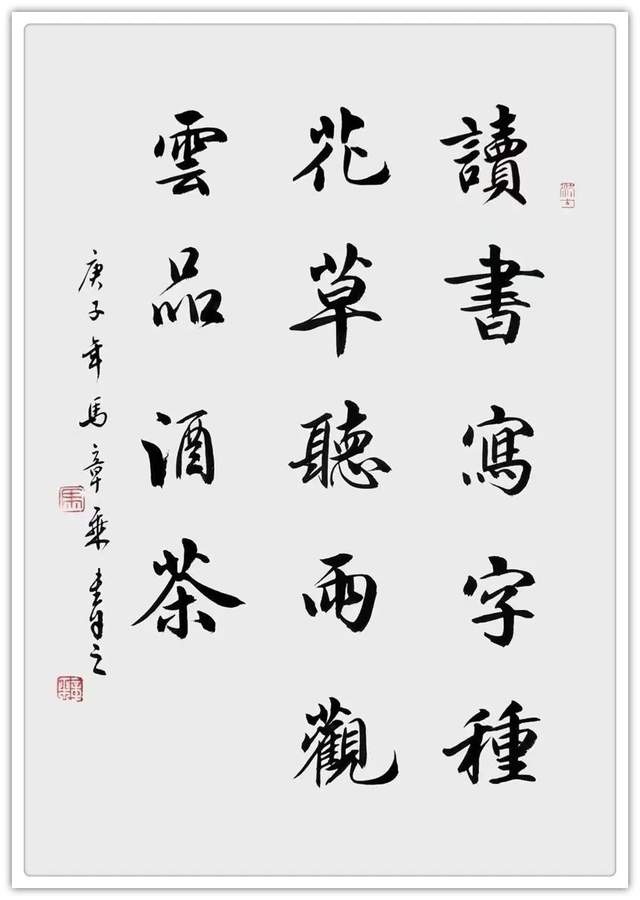 讀書寫字種
花草聽雨觀
雲品酒茶
庚子年馬章乘書之